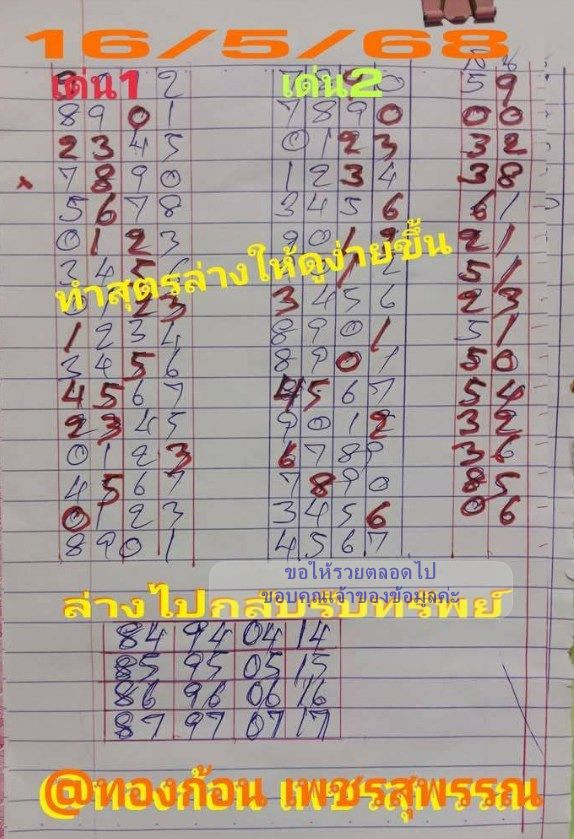 16/5/68
เด่น1 เด่น2
2 0 5 9
8 9 0 1 7 8 9 0 0 0
2 3 4 5 0 1 2 3 3 2
x 7 8 9 0 1 2 3 4 3 8
5 6 7 8 3 4 5 6 6 1
0 1 2 3 9 0 1 2 2 1
3 4 5 6 1 2 5 1
ทำสูตรล่างให้ดูง่ายขึ้น
0 1 2 3 3 4 5 6 2 3
1 2 3 4 8 9 0 1 5 1
3 4 5 6 8 9 0 1 5 0
4 5 6 7 4 5 6 7 5 4
2 3 4 5 9 0 1 2 3 2
0 1 2 3 6 7 8 9 3 6
4 5 6 7 7 8 9 0 8 5
0 1 2 3 3 4 5 6 0 6
8 9 0 1 4 5 6 7
ขอให้รวยตลอดไป
ขอบคุณเจ้าของข้อมูลค่ะ
ล่างไปกลับรับทรัพย์
84 94 04 14
85 95 05 15
86 96 06 16
87 97 07 17
@ทองก้อน เพชรสุพรรณ